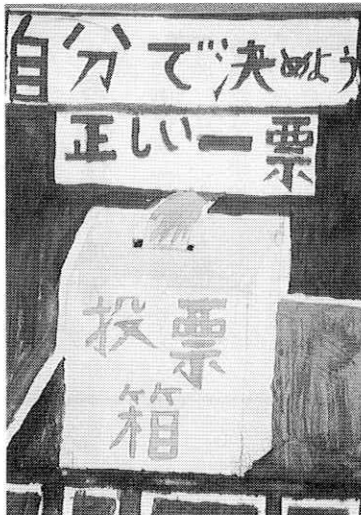 自分で決めよう
正しい一票
投票
箱